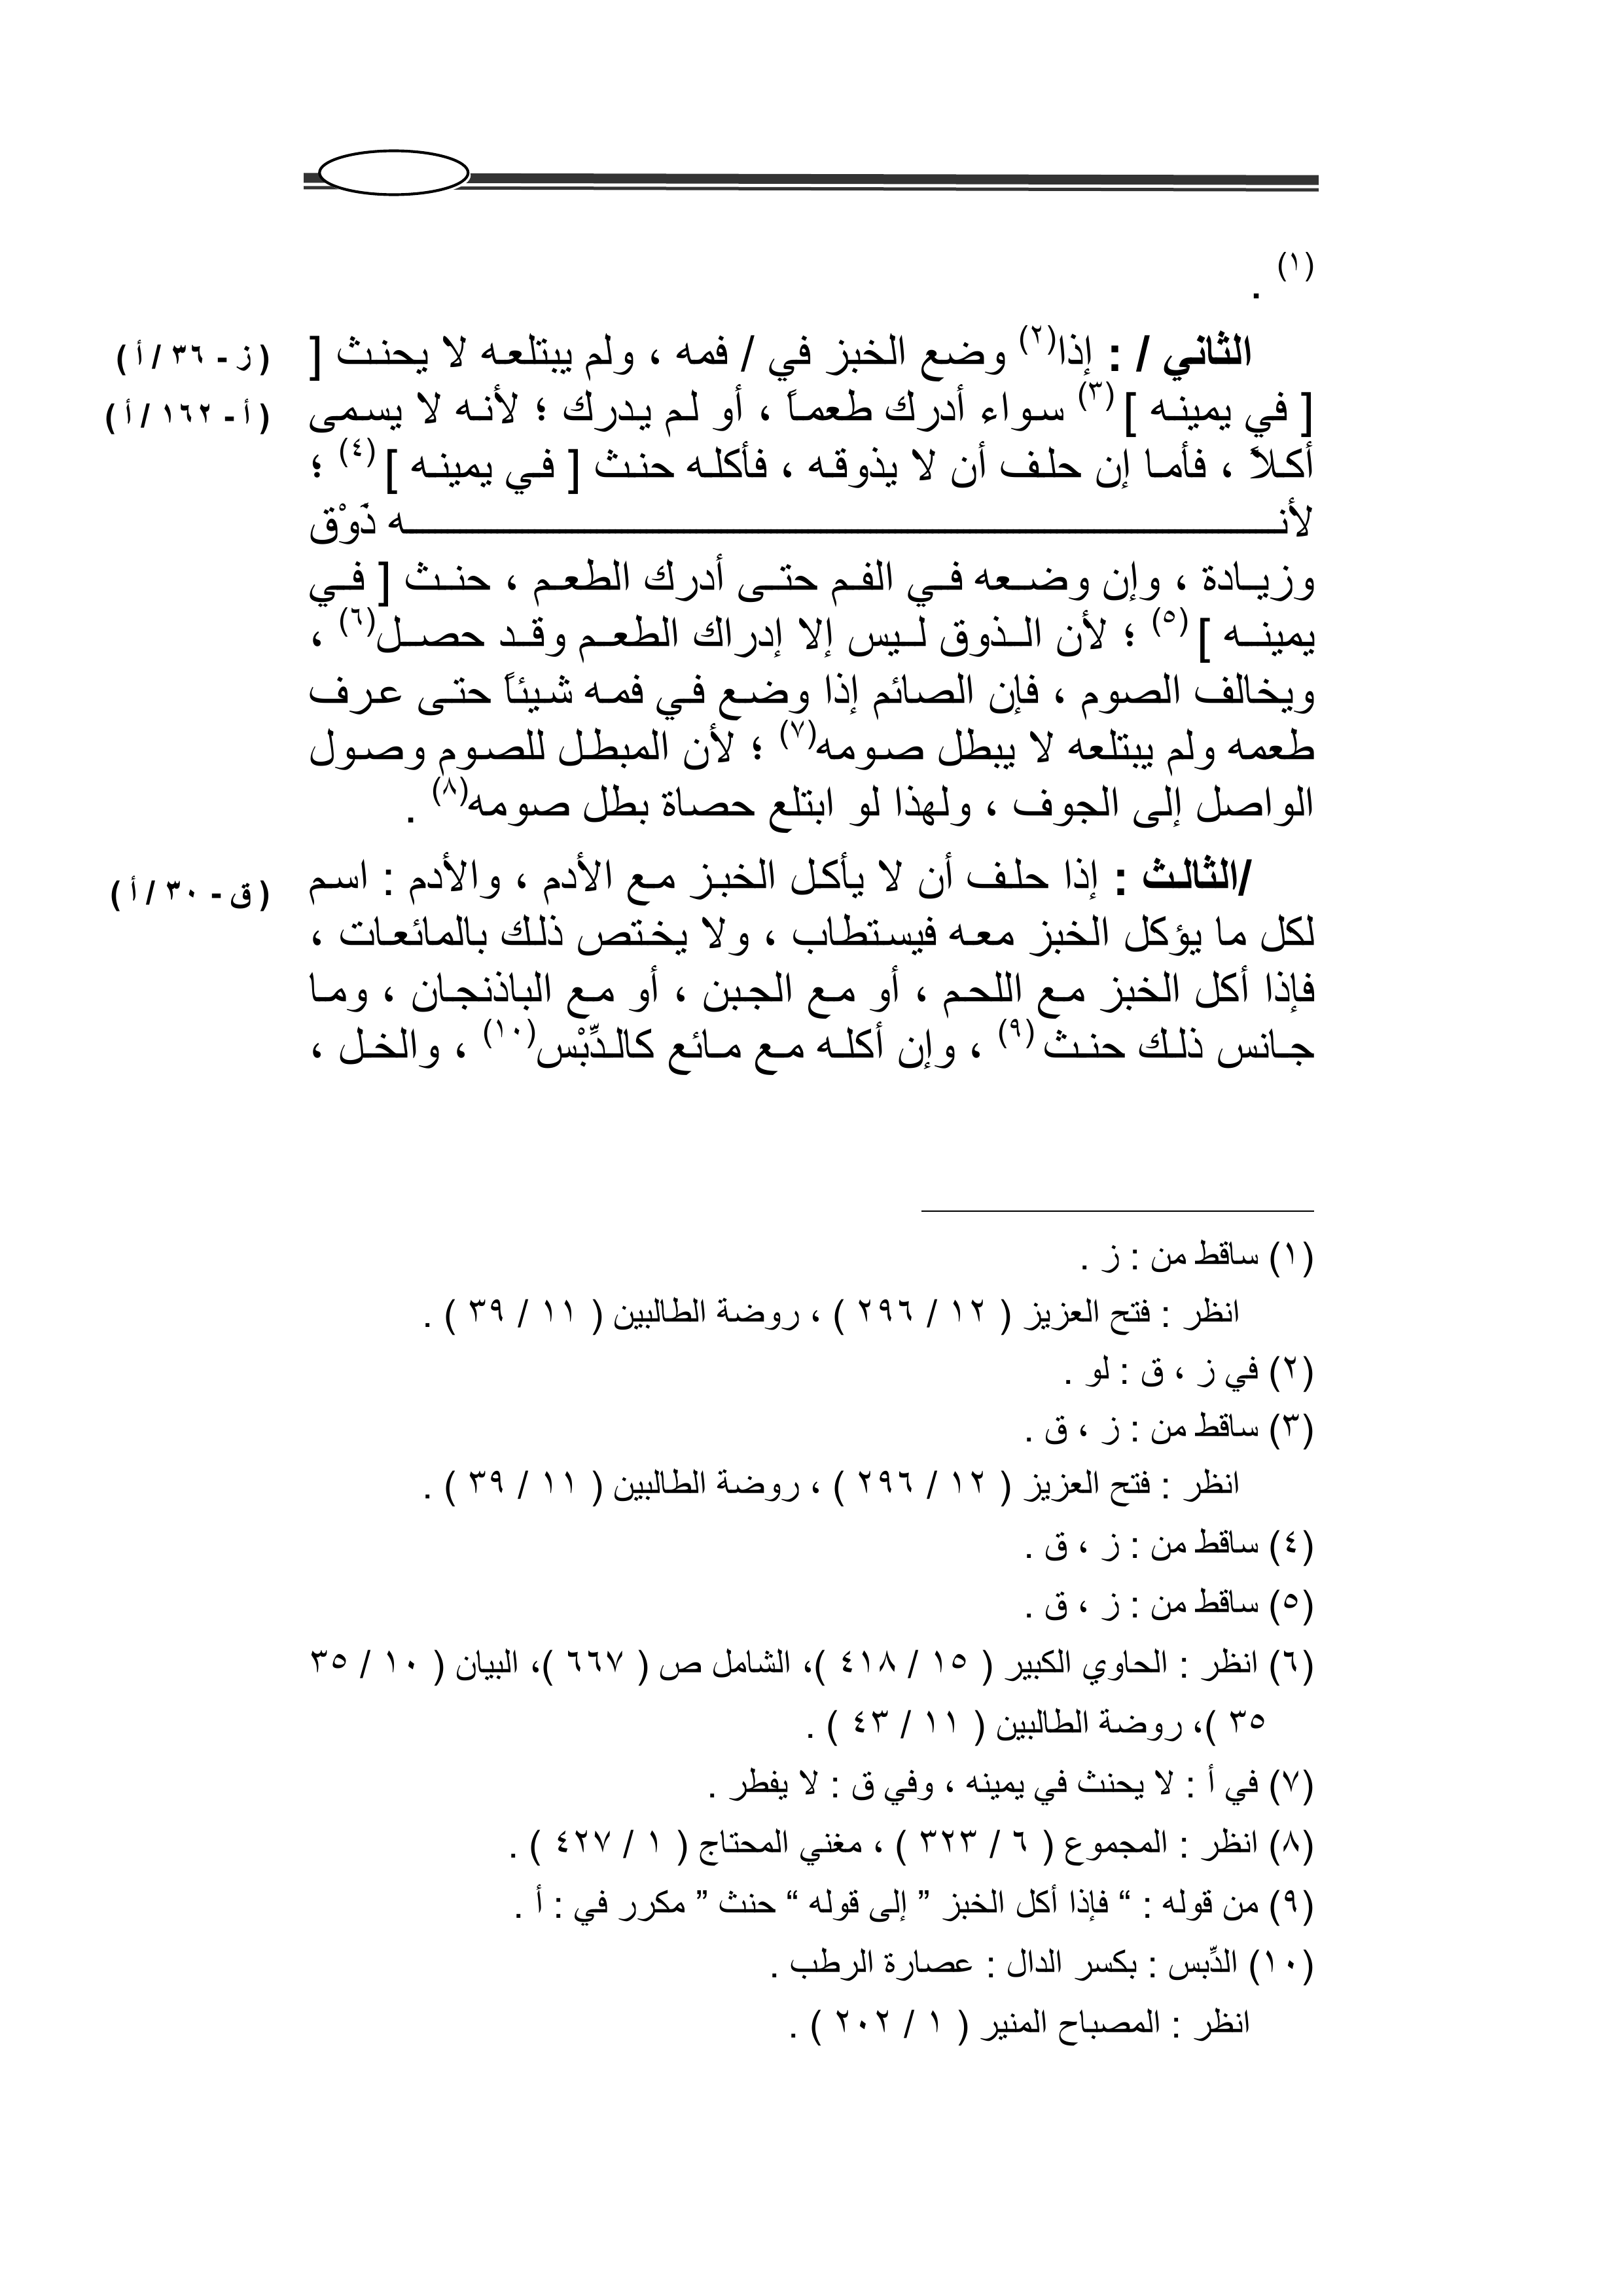 (١) .
الثاني / : إذا(٢) وضع الخبز في / فمه ، ولم يبتلعه لا يحنث [
( ز - ٣٦ / أ )
[ في يمينه ] (٣) سواء أدرك طعماً ، أو لم يدرك ؛ لأنه لا يسمى
( أ - ١٦٢ / أ )
أكلاً ، فأما إن حلف أن لا يذوقه ، فأكله حنث [ في يمينه ] (٤) ؛
لأنه ذَوْق
وزيادة ، وإن وضعه في الفم حتى أدرك الطعم ، حنث [ في
يمينه ] (٥) ؛ لأن الذوق ليس إلا إدراك الطعم وقد حصل(٦) ،
ويخالف الصوم ، فإن الصائم إذا وضع في فمه شيئاً حتى عرف
طعمه ولم يبتلعه لا يبطل صومه(٧) ؛ لأن المبطل للصوم وصول
الواصل إلى الجوف ، ولهذا لو ابتلع حصاة بطل صومه(٨) .
/الثالث : إذا حلف أن لا يأكل الخبز مع الأدم ، والأدم : اسم
( ق - ٣٠ / أ )
لكل ما يؤكل الخبز معه فيستطاب ، ولا يختص ذلك بالمائعات ،
فإذا أكل الخبز مع اللحم ، أو مع الجبن ، أو مع الباذنجان ، وما
جانس ذلك حنث (٩) ، وإن أكله مع مائع كالدِّبْس(١٠) ، والخل ،
(١) ساقط من : ز .
انظر : فتح العزيز ( ١٢ / ٢٩٦ ) ، روضة الطالبين ( ١١ / ٣٩ ) .
(٢) في ز ، ق : لو .
(٣) ساقط من : ز ، ق .
انظر : فتح العزيز ( ١٢ / ٢٩٦ ) ، روضة الطالبين ( ١١ / ٣٩ ) .
(٤) ساقط من : ز ، ق .
(٥) ساقط من : ز ، ق .
(٦) انظر : الحاوي الكبير ( ١٥ / ٤١٨ )، الشامل ص ( ٦٦٧ )، البيان ( ١٠ / ٣٥
٣٥ )، روضة الطالبين ( ١١ / ٤٣ ) .
(٧) في أ : لا يحنث في يمينه ، وفي ق : لا يفطر .
(٨) انظر : المجموع ( ٦ / ٣٢٣ ) ، مغني المحتاج ( ١ / ٤٢٧ ) .
(٩) من قوله : “ فإذا أكل الخبز ” إلى قوله “ حنث ” مكرر في : أ .
(١٠) الدِّبس : بكسر الدال : عصارة الرطب .
انظر : المصباح المنير ( ١ / ٢٠٢ ) .